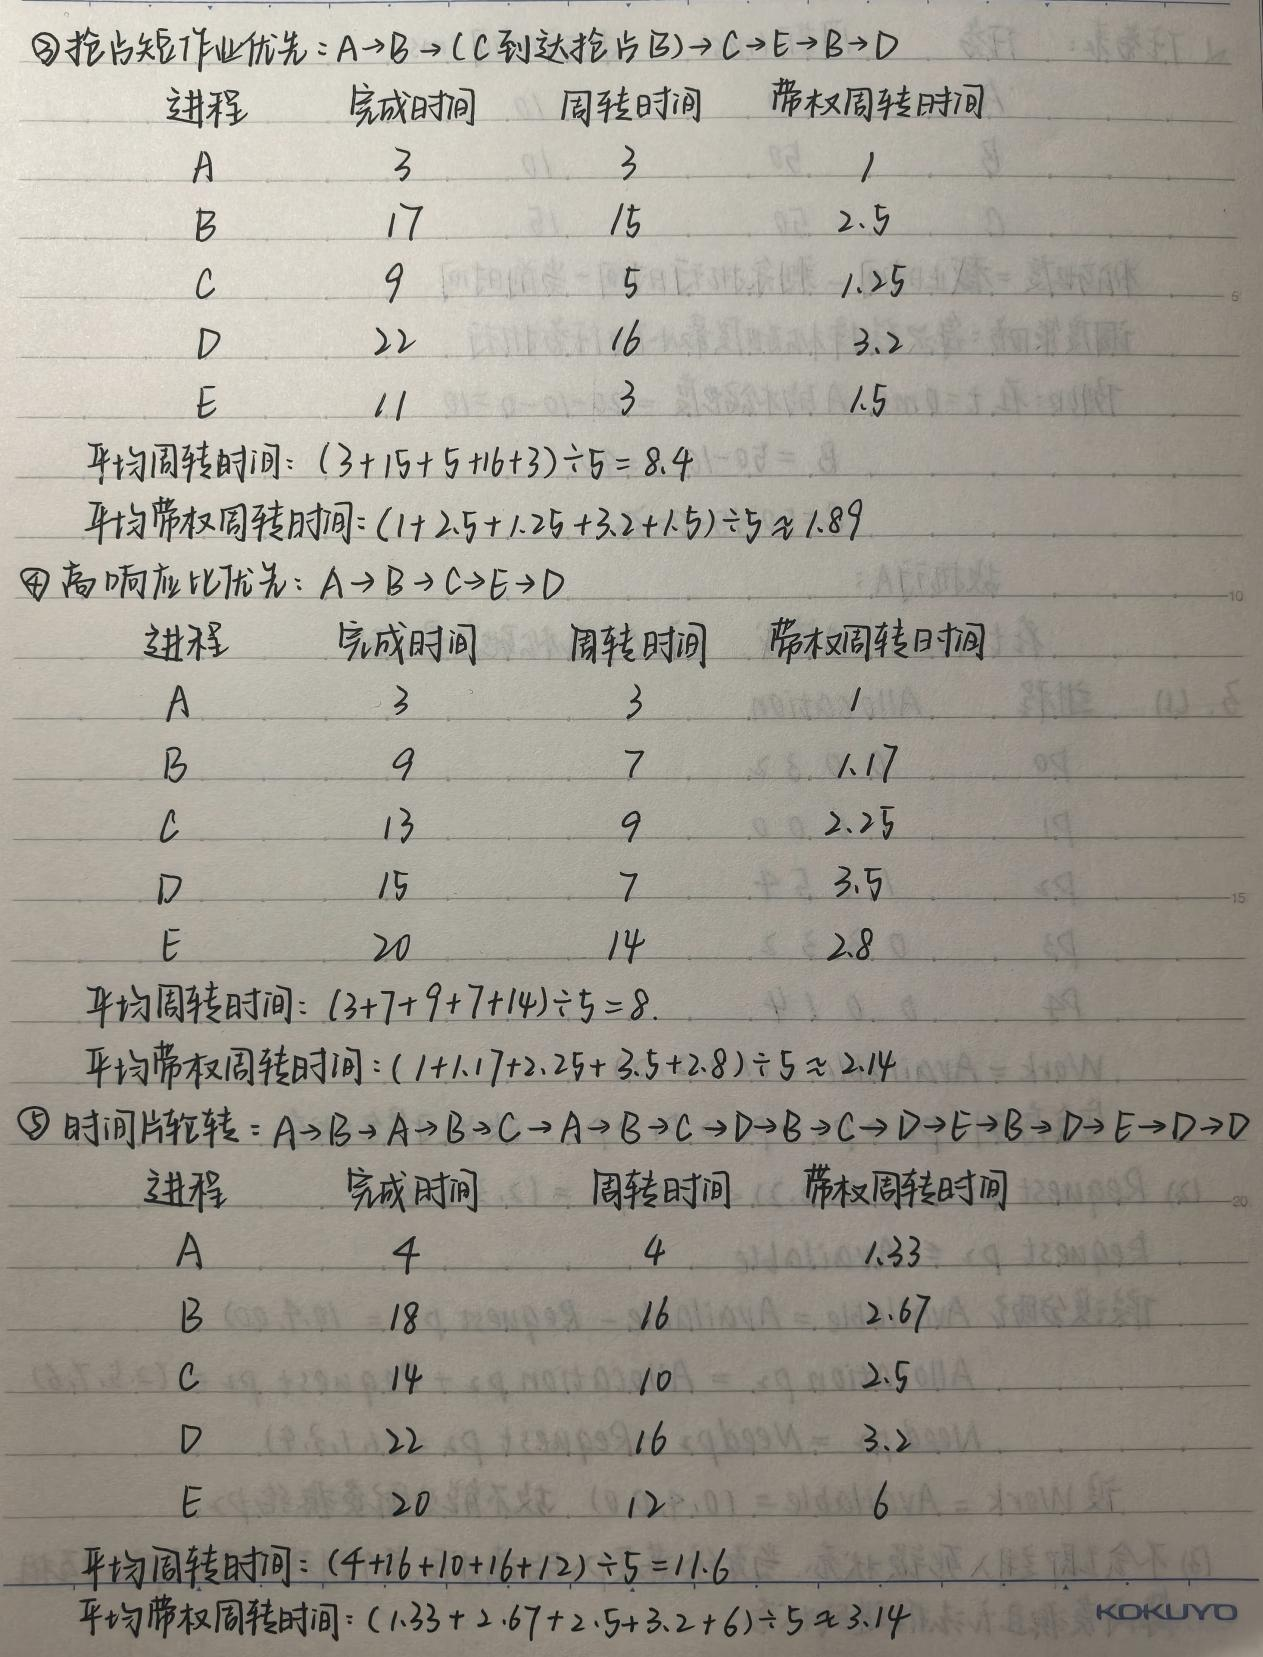 ③抢占短作业优先：A→B→(C到达抢占B)→C→E→B→D
进程 完成时间 周转时间 带权周转时间
A 3 3 1
B 17 15 2.5
C 9 5 1.25
D 22 16 3.2
E 11 3 1.5
平均周转时间：(3+15+5+16+3)÷5=8.4
平均带权周转时间：(1+2.5+1.25+3.2+1.5)÷5≈1.89
④高响应比优先：A→B→C→E→D
进程 完成时间 周转时间 带权周转时间
A 3 3 1
B 9 7 1.17
C 13 9 2.25
D 15 7 3.5
E 20 14 2.8
平均周转时间：(3+7+9+7+14)÷5=8.
平均带权周转时间：(1+1.17+2.25+3.5+2.8)÷5≈2.14
⑤时间片轮转：A→B→A→B→C→A→B→C→D→B→C→D→E→B→D→E→D→D
进程 完成时间 周转时间 带权周转时间
A 4 4 1.33
B 18 16 2.67
C 14 10 2.5
D 22 16 3.2
E 20 12 6
平均周转时间：(4+16+10+16+12)÷5=11.6
平均带权周转时间：(1.33+2.67+2.5+3.2+6)÷5≈3.14
KOKUYO